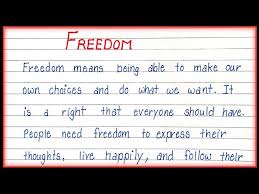 FREEDOM
Freedom means being able to make our
own choices and do what we want. It
is a right that everyone should have.
People need freedom to express their
thoughts, live happily, and follow their